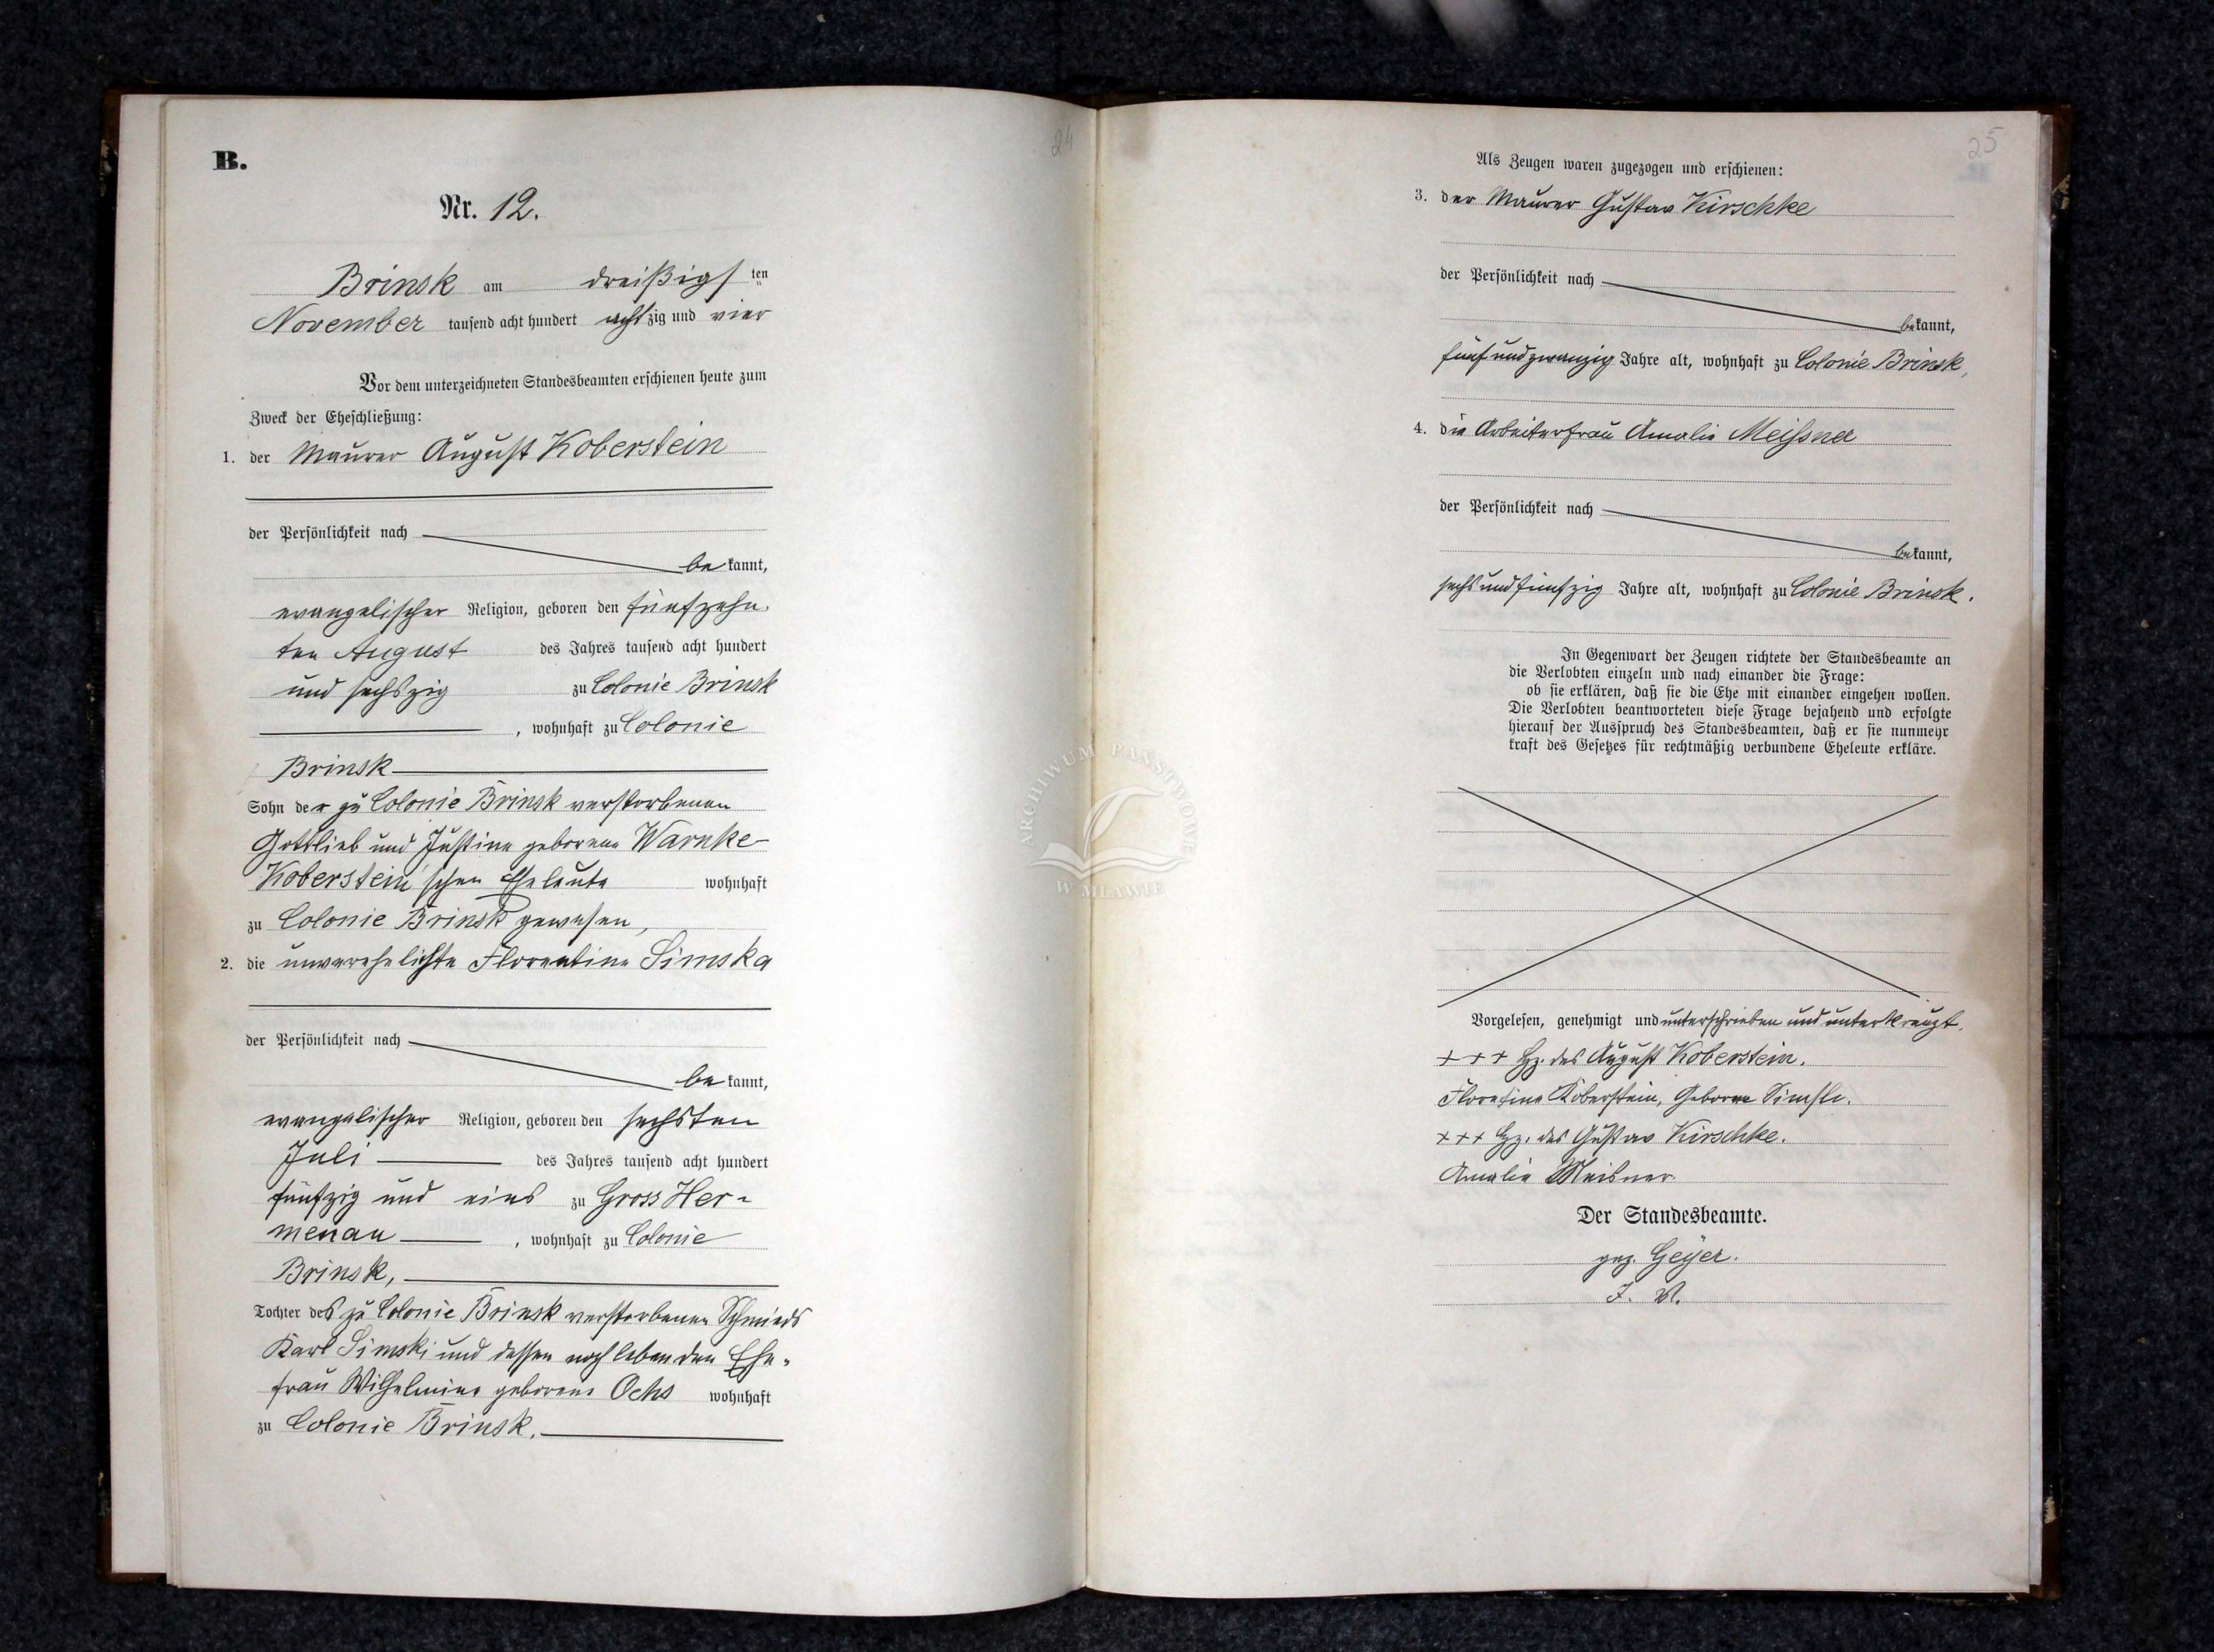 24
B.
Nr. 12.
Brinsk am dreißigsten
November tausend acht hundert achtzig und vier
Vor dem unterzeichneten Standesbeamten erschienen heute zum
Zweck der Eheschließung:
1. der Maurer August Koberstein
der Persönlichkeit nach
be kannt,
evangelischer Religion, geboren den fünfzehn-
ten August des Jahres tausend acht hundert
und sechszig zu Colonie Brinsk
, wohnhaft zu Colonie
Brinsk
Sohn der zu Colonie Brinsk verstorbenen
Gottlieb und Justine geborene Warnke
Koberstein'schen Eheleute wohnhaft
zu Colonie Brinsk gewesen,
2. die unverehelichte Florentine Simska
der Persönlichkeit nach
be kannt,
evangelischer Religion, geboren den sechsten
Juli des Jahres tausend acht hundert
fünfzig und eins zu Gross Her-
menau , wohnhaft zu Colonie
Brinsk,
Tochter des zu Colonie Brinsk verstorbenen Schmieds
Karl Simski und dessen noch lebenden Ehe-
frau Wilhelmine geborene Ochs wohnhaft
zu Colonie Brinsk.
25
Als Zeugen waren zugezogen und erschienen:
3. der Maurer Gustav Kirschke
der Persönlichkeit nach
bekannt,
fünfundzwanzig Jahre alt, wohnhaft zu Colonie Brinsk,
4. die Arbeiterfrau Amalie Meißner
der Persönlichkeit nach
bekannt,
sechsundfünfzig Jahre alt, wohnhaft zu Colonie Brinsk.
In Gegenwart der Zeugen richtete der Standesbeamte an
die Verlobten einzeln und nach einander die Frage:
ob sie erklären, daß sie die Ehe mit einander eingehen wollen.
Die Verlobten beantworteten diese Frage bejahend und erfolgte
hierauf der Ausspruch des Standesbeamten, daß er sie nunmehr
kraft des Gesetzes für rechtmäßig verbundene Eheleute erkläre.
Vorgelesen, genehmigt und unterschrieben und unterkreuzt.
+ + + Hz. des August Koberstein.
Florentine Koberstein, Geborene
+++ Hz. des Gustav Kirschke.
Amalie Meisner.
Der Standesbeamte.
gez. Geÿer.
ARCHIWUM PAŃSTWOWE
W MŁAWIE